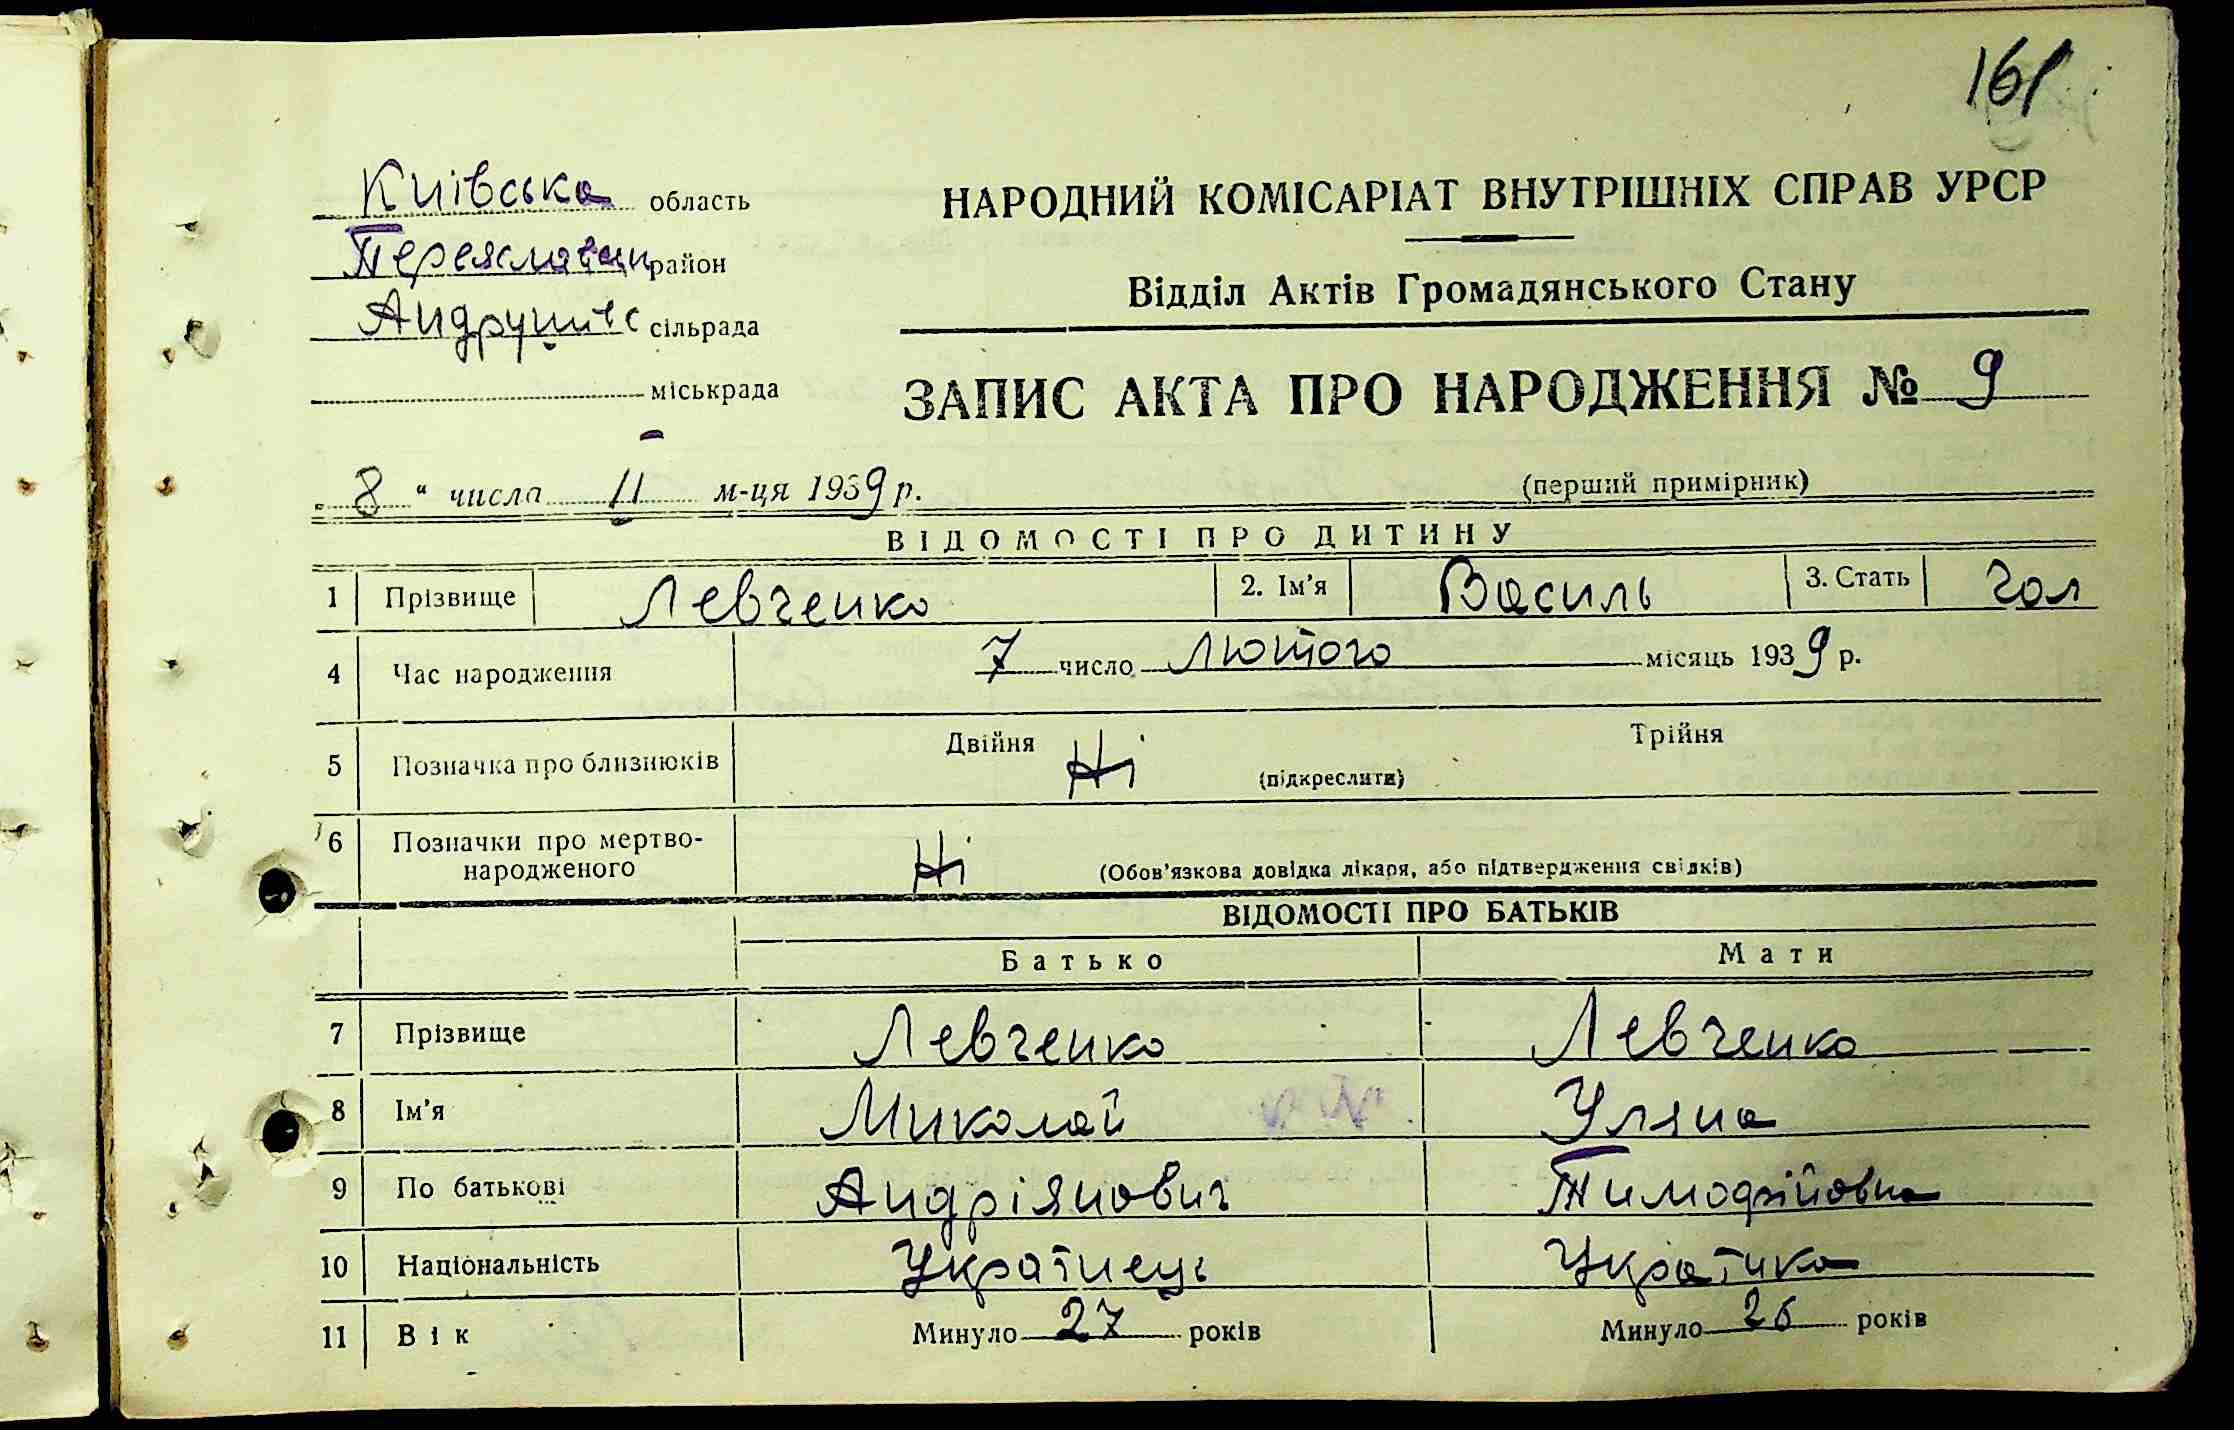 161
Київська область
НАРОДНИЙ КОМІСАРІАТ ВНУТРІШНІХ СПРАВ УРСР
район
Відділ Актів Громадянського Стану
Андрушівс сільрада
міськрада
ЗАПИС АКТА ПРО НАРОДЖЕННЯ № 9
„ 8 “ числа II м-ця 1939 р.
(перший примірник)
ВІДОМОСТІ ПРО ДИТИНУ
1 Прізвище Левченко 2. Ім’я Василь 3. Стать чол
4 Час народження 7 число Лютого місяць 1939 р.
5 Позначка про близнюків Двійня Ні (підкреслити) Трійня
6 Позначки про мертво-
народженого Ні (Обов’язкова довідка лікаря, або підтвердження свідків)
ВІДОМОСТІ ПРО БАТЬКІВ
Батько Мати
7 Прізвище Левченко Левченко
8 Ім’я Миколай Уляна
9 По батькові Андріянович Тимофійовна
10 Національність Українець Українка
11 Вік Минуло 27 років Минуло 26 років